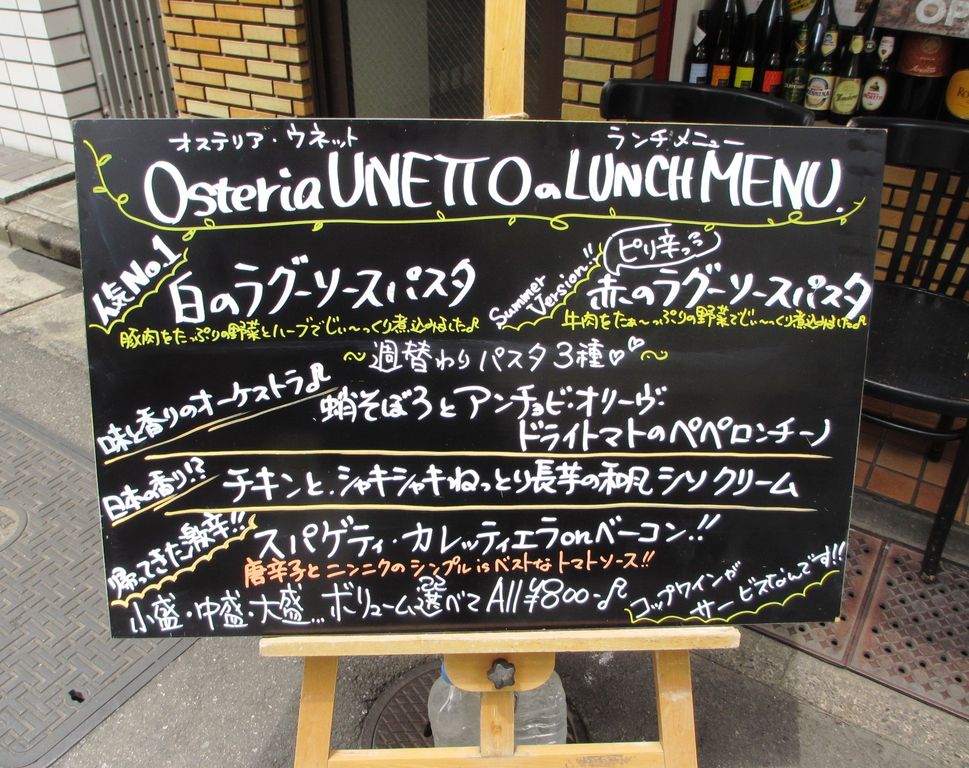 オステリア・ウネット
ランチメニュー
Osteria UNETTOのLUNCH MENU.
人気No.1
白のラグーソースパスタ
豚肉をたっぷりの野菜とハーブでじぃ〜っくり煮込みました♪
Summer Version!!
ピリ辛っ
赤のラグーソースパスタ
牛肉をたぁ〜っぷりの野菜でじぃ〜っくり煮込みました♪
〜週替わりパスタ3種♡♡〜
味と香りのオーケストラ♪
蛸そぼろとアンチョビ・オリーヴ・
ドライトマトのペペロンチーノ
日本の香り!?
チキンと、シャキシャキねっとり長芋の和風シソクリーム
帰ってきた激辛!!
スパゲティ・カレッティエラonベーコン!!
唐辛子とニンニクのシンプルisベストなトマトソース!!
小盛・中盛・大盛...ボリューム選べてAll¥800-♪
コップワインが
サービスなんです!!
OP